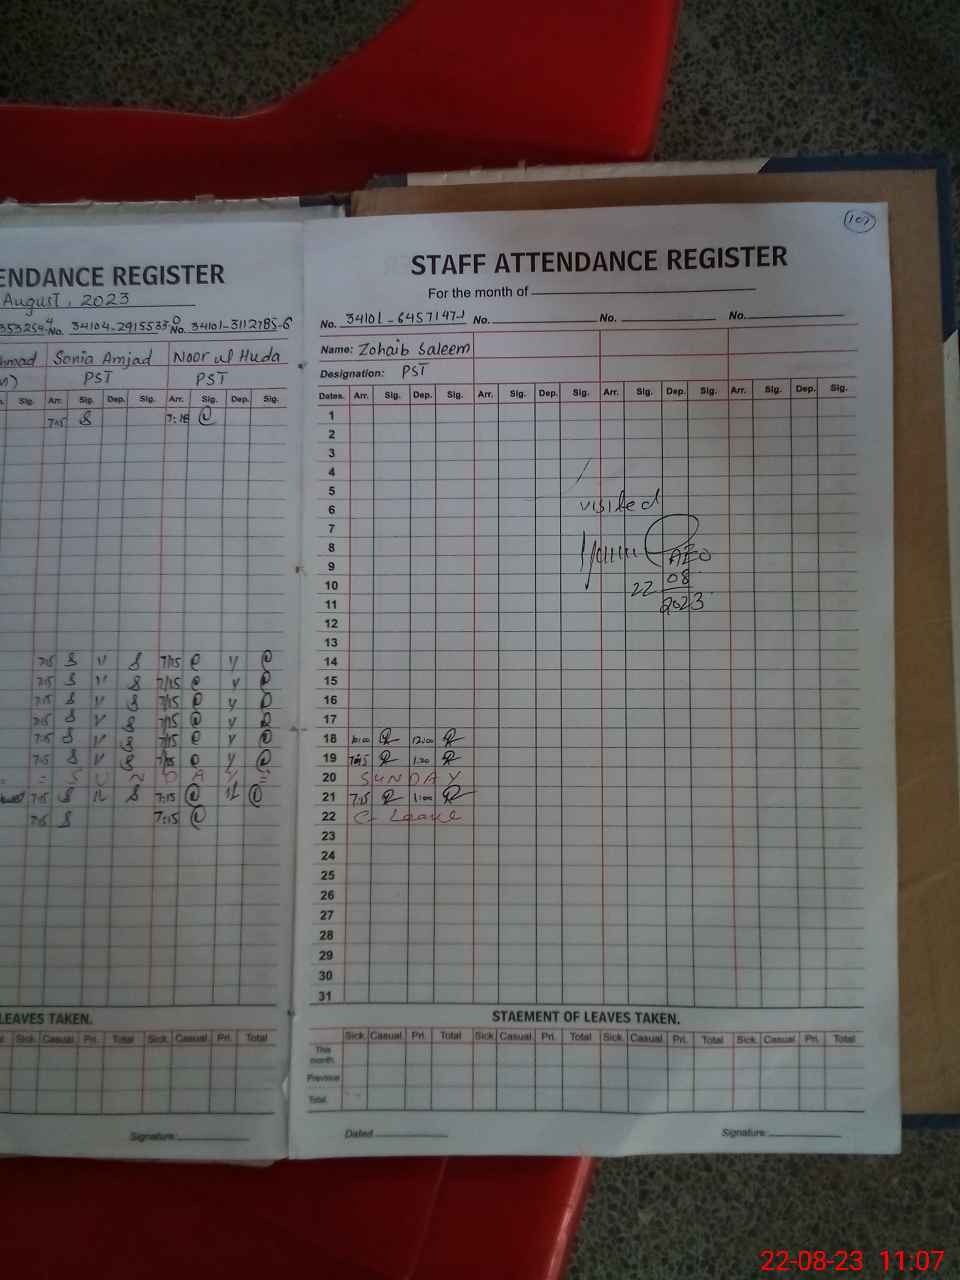 ENDANCE REGISTER
August, 2023
353254-4 No. 34104-2915533-0 No. 34101-3112785-6
hmad Sonia Amjad Noor ul Huda
PST PST
Sig. Arr. Sig. Dep. Sig. Arr. Sig. Dep. Sig.
7:15 7:15
7:15 7/15
7:15 7/15
7:15 7/15
7:15 7/15
7:15 7/15
7:15 7/15
= S U N D A Y =
7:15 12 7:15 12
7:15 7:15
LEAVES TAKEN.
Sick. Casual Pri. Total Sick. Casual Pri. Total
Signature
107
STAFF ATTENDANCE REGISTER
For the month of
No. 34101-6457147-1 No. No. No.
Name: Zohaib Saleem
Designation: PST
Dates. Arr. Sig. Dep. Sig. Arr. Sig. Dep. Sig. Arr. Sig. Dep. Sig. Arr. Sig. Dep. Sig.
1
2
3
4
5
6 visited
7
8
9 AEO
10 22 08
11 2023
12
13
14
15
16
17
18 10:00 12:00
19 7:15 1:30
20 SUNDAY
21 7:15 1:00
22 C- Leave
23
24
25
26
27
28
29
30
31
STAEMENT OF LEAVES TAKEN.
Sick. Casual Pri. Total Sick. Casual Pri. Total Sick. Casual Pri. Total Sick. Casual Pri. Total
This month.
Previous
Total.
Dated Signature
22-08-23 11:07